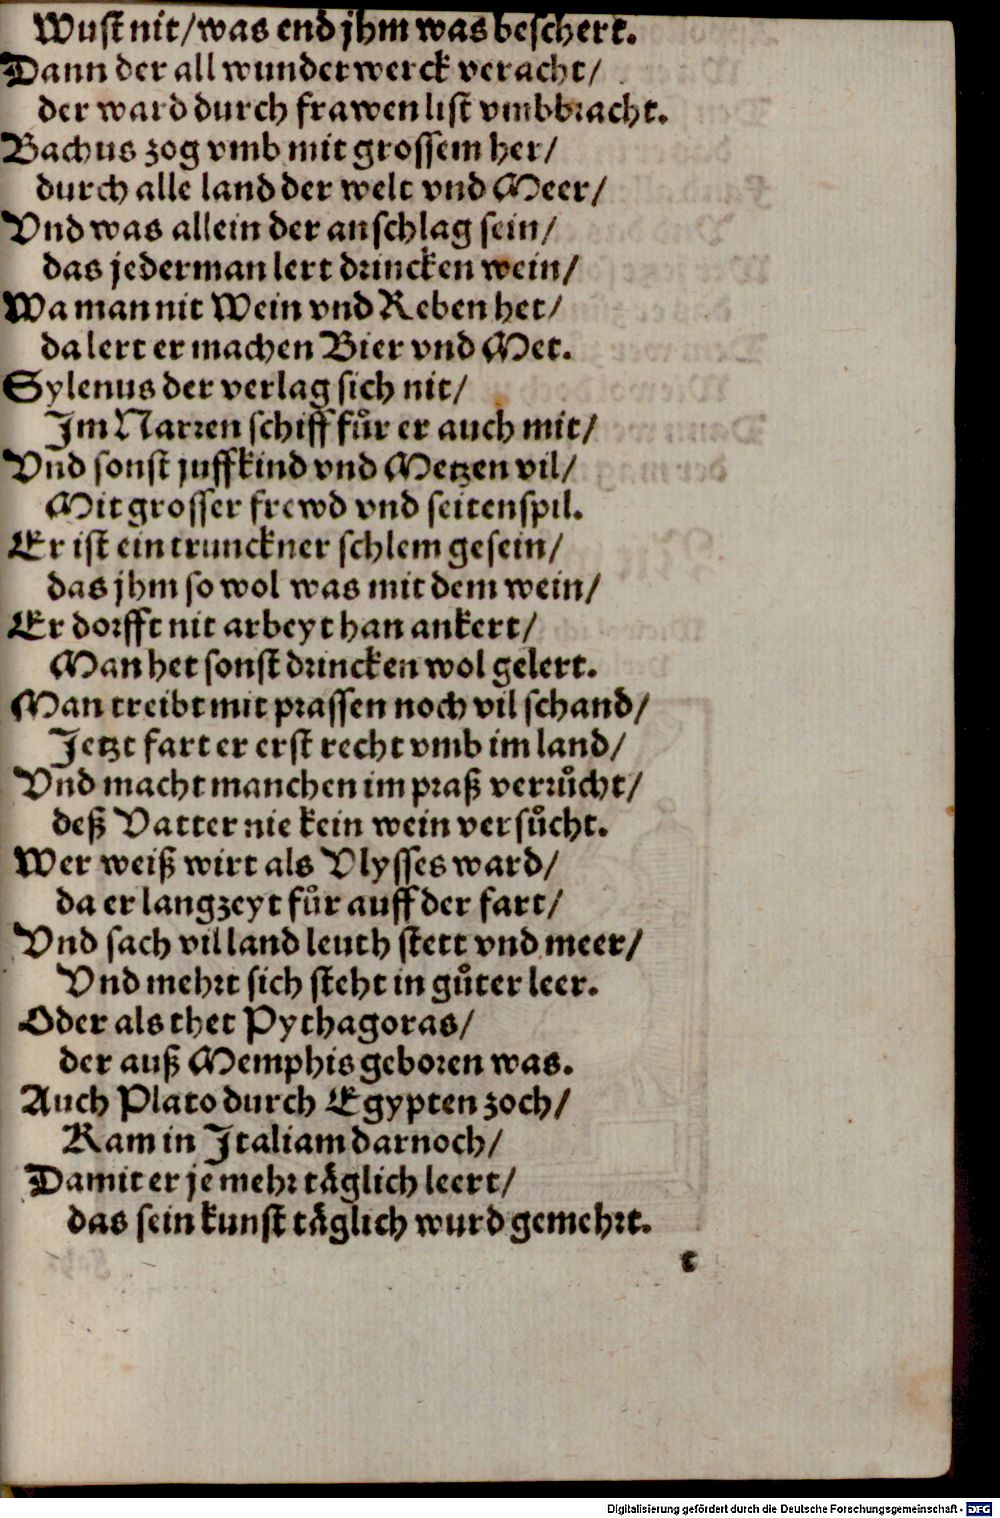 Wust nit/was end jhm was beschert.
Dann der all wunderwerck veracht/
der ward durch frawen list vmbbracht.
Bachus zog vmb mit grossem her/
durch alle land der welt vnd Meer/
Vnd was allein der anschlag sein/
das jederman lert drincken wein/
Wa man nit Wein vnd Reben het/
da lert er machen Bier vnd Met.
Sylenus der verlag sich nit/
Im Narren schiff fůr er auch mit/
Vnd sonst juffkind vnd Metzen vil/
Mit grosser frewd vnd seitenspil.
Er ist ein trunckner schlem gesein/
das jhm so wol was mit dem wein/
Er dorfft nit arbeyt han ankert/
Man het sonst drincken wol gelert.
Man treibt mit prassen noch vil schand/
Jetzt fart er erst recht vmb im land/
Vnd macht manchen im praß verrůcht/
deß Vatter nie kein wein versůcht.
Wer weiß wirt als Vlysses ward/
da er lang zeyt fůr auff der fart/
Vnd sach vil land leuth stett vnd meer/
Vnd mehrt sich steht in gůter leer.
Oder als thet Pythagoras/
der auß Memphis geboren was.
Auch Plato durch Egypten zoch/
Kam in Italiam darnoch/
Damit er je mehr täglich leert/
das sein kunst täglich wurd gemehrt.
t
Digitalisierung gefördert durch die Deutsche Forschungsgemeinschaft - DFG